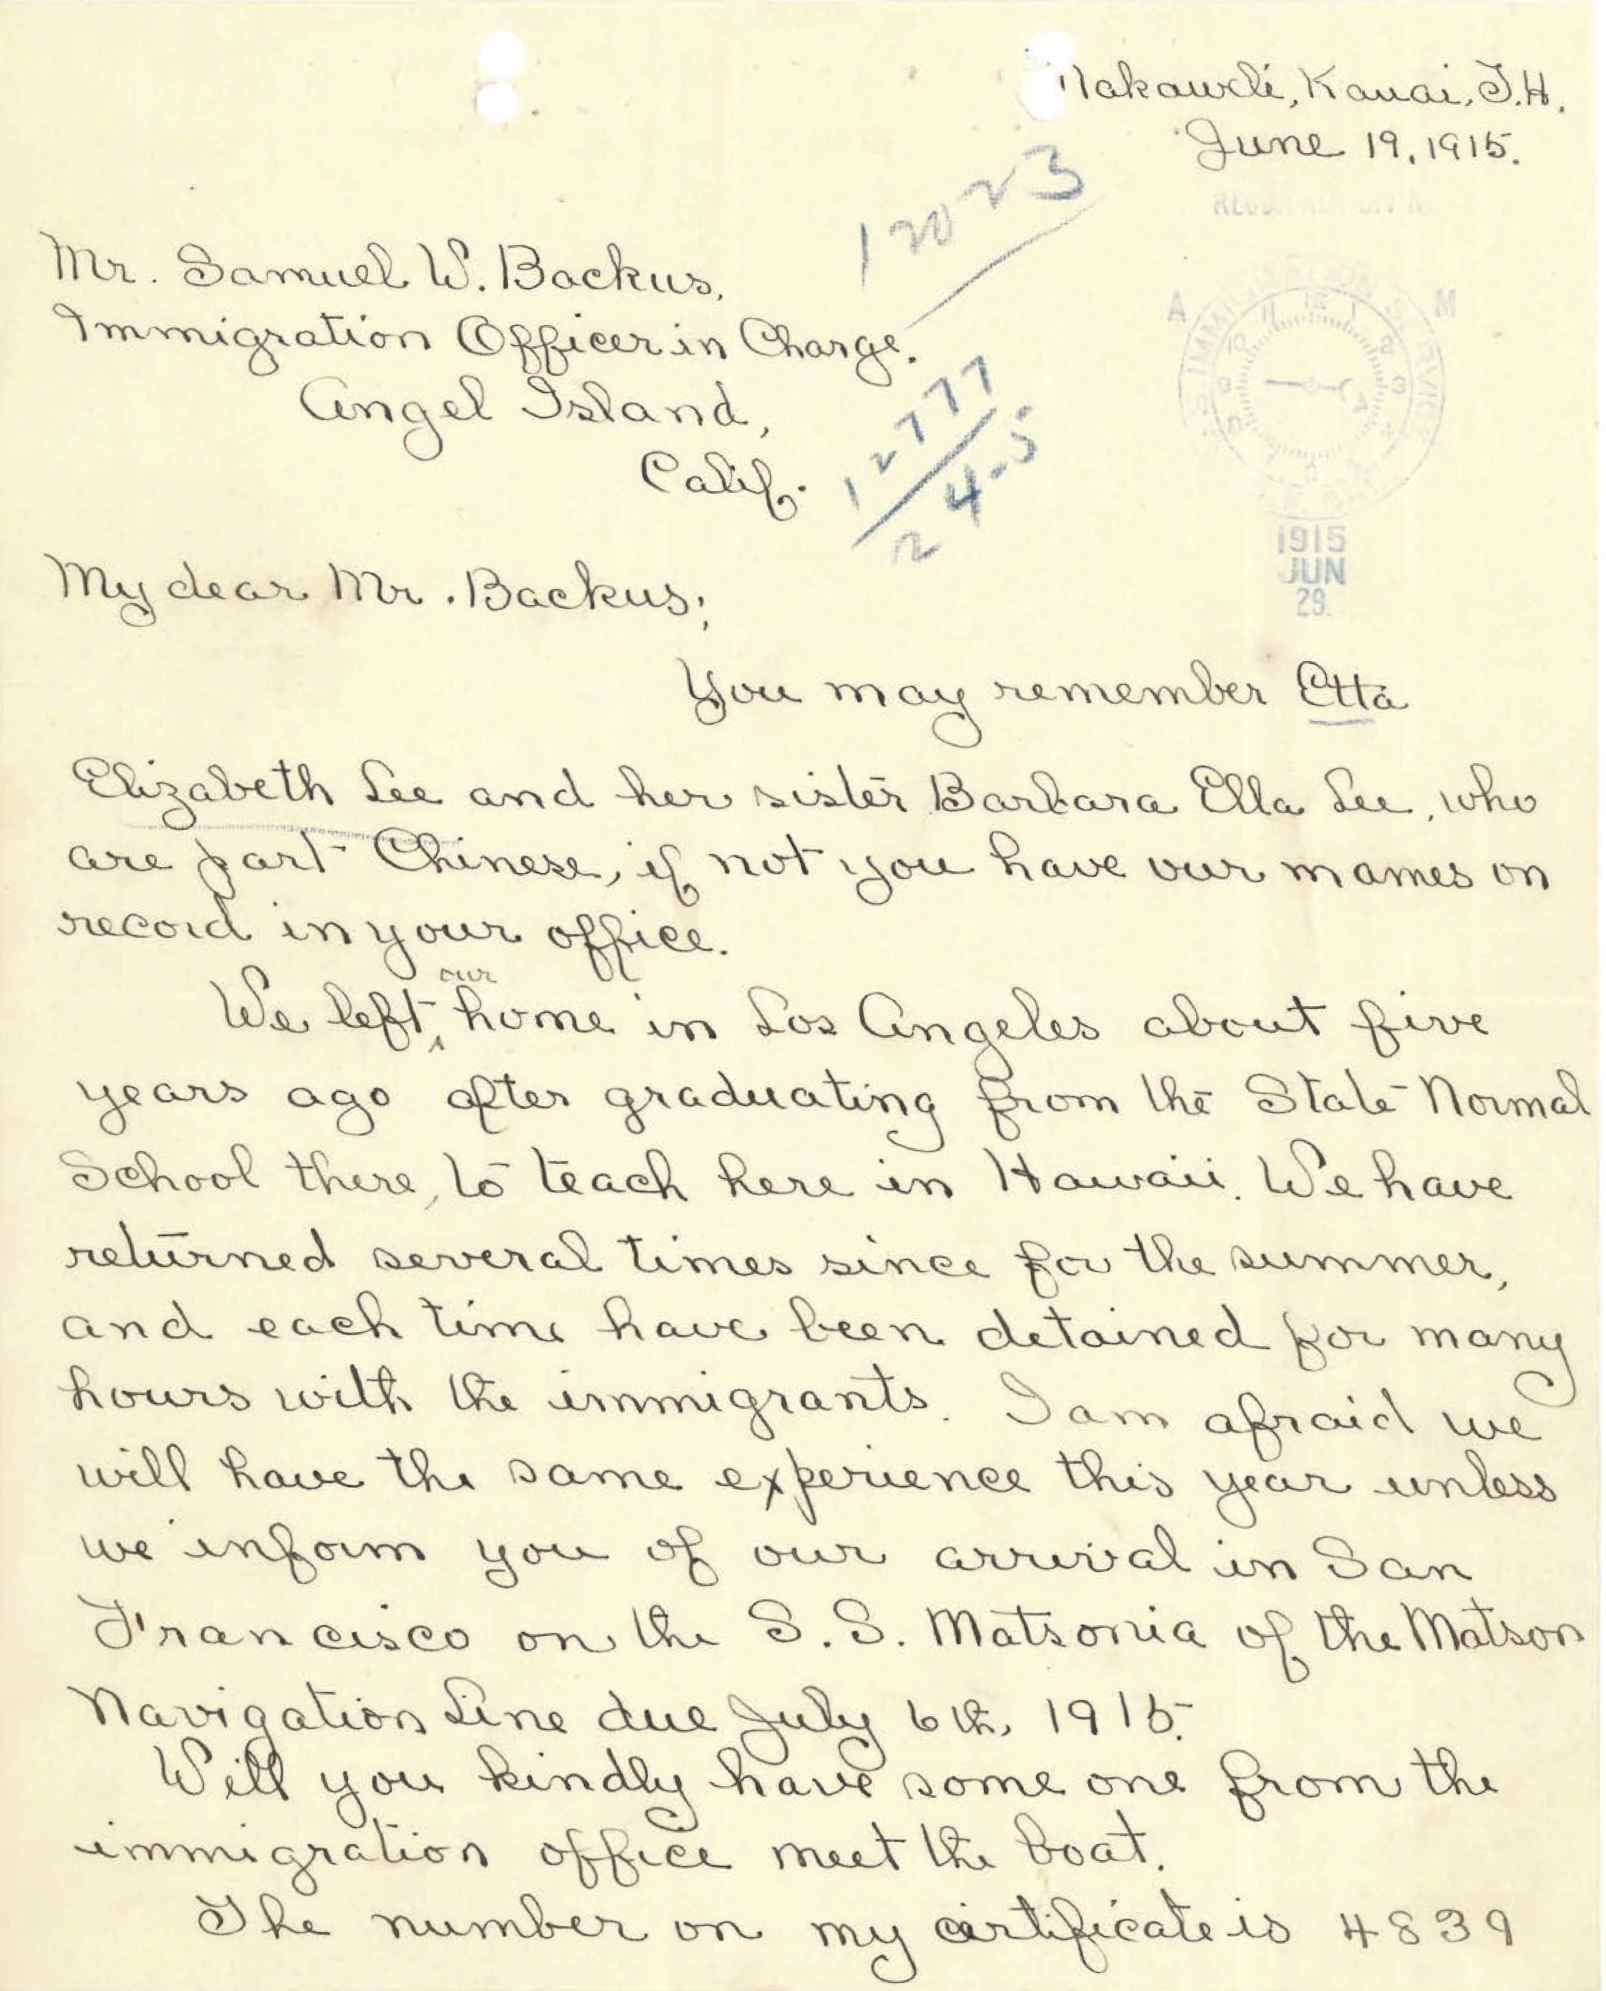 Makaweli, Kauai, T.H.
June 19, 1915.
12023
Mr. Samuel W. Backus,
Immigration Officer in Charge.
Angel Island,
Calif.
12777
24-5
A M
IMMIGRATION SERVICE
1915
JUN
29.
My dear Mr. Backus;
You may remember Etta
Elizabeth Lee and her sister Barbara Ella Lee, who
are part Chinese, if not you have our mames on
record in your office.
We left our home in Los Angeles about five
years ago after graduating from the State Normal
School there, to teach here in Hawaii. We have
returned several times since for the summer,
and each time have been detained for many
hours with the immigrants. I am afraid we
will have the same experience this year unless
we inform you of our arrival in San
Francisco on the S.S. Matsonia of the Matson
Navigation Line due July 6th, 1915.
Will you kindly have some one from the
immigration office meet the boat.
The number on my certificate is 4839